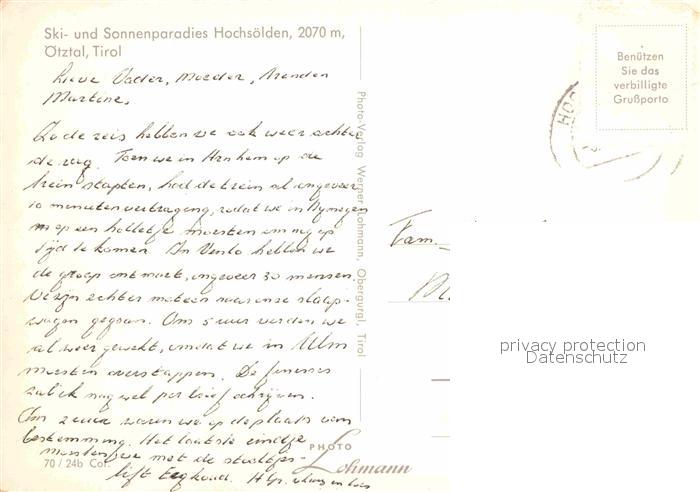 Ski- und Sonnenparadies Hochsölden, 2070 m,
Ötztal, Tirol
Lieve Vader, Moeder, Brenden
Martine,
Zo de reis hebben we ook weer achter
de rug. Toen we in Arnhem op de
trein stapten, had de trein al ongeveer
10 minuten vertraging, zodat we in Nijmegen
op een holletje moesten om nog op
tijd te komen. In Venlo hebben we
de groep ontmoet, ongeveer 30 mensen.
We zijn echter meteen naar onze slaap-
wagen gegaan. Om 5 uur werden we
al weer gewekt, omdat we in Ulm
moesten overstappen. De finesses
zal ik nog wel per brief schrijven.
Om 2 uur waren we op de plaats van
bestemming. Het laatste eindje
moesten we met de stoeltjes-
lift Erg koud.
70 / 24b Col.
PHOTO
Lohmann
Photo-Verlag Werner Lohmann, Obergurgl, Tirol
Benützen
Sie das
verbilligte
Grußporto
HOC
Fam.
M.
privacy protection
Datenschutz